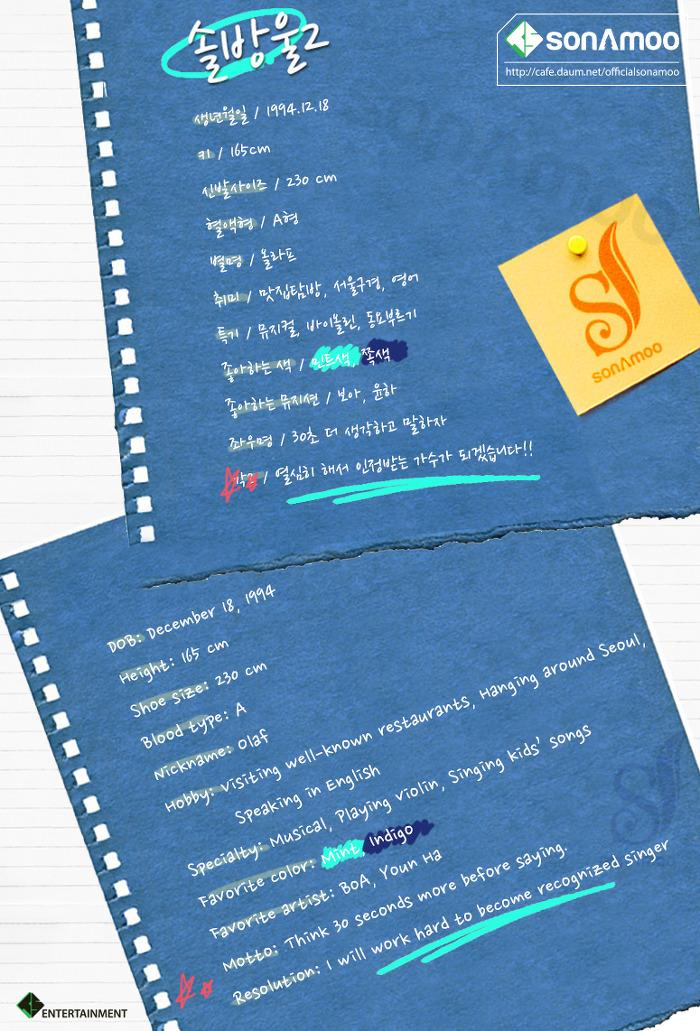 솔방울2
SONAMOO
http://cafe.daum.net/officialsonamoo
생년월일 / 1994.12.18
키 / 165cm
신발사이즈 / 230 cm
혈액형 / A형
별명 / 올라프
취미 / 맛집탐방, 서울구경, 영어
특기 / 뮤지컬, 바이올린, 동요부르기
좋아하는 색 / 민트색, 쪽색
좋아하는 뮤지션 / 보아, 윤하
좌우명 / 30초 더 생각하고 말하자
각오 / 열심히 해서 인정받는 가수가 되겠습니다!!
SONAMOO
DOB: December 18, 1994
Height: 165 cm
Shoe size: 230 cm
Blood type: A
Nickname: Olaf
Hobby: Visiting well-known restaurants, Hanging around Seoul,
Speaking in English
Specialty: Musical, Playing violin, Singing kids' songs
Favorite color: Mint, Indigo
Favorite artist: BoA, Youn Ha
Motto: Think 30 seconds more before saying.
Resolution: I will work hard to become recognized singer
ENTERTAINMENT